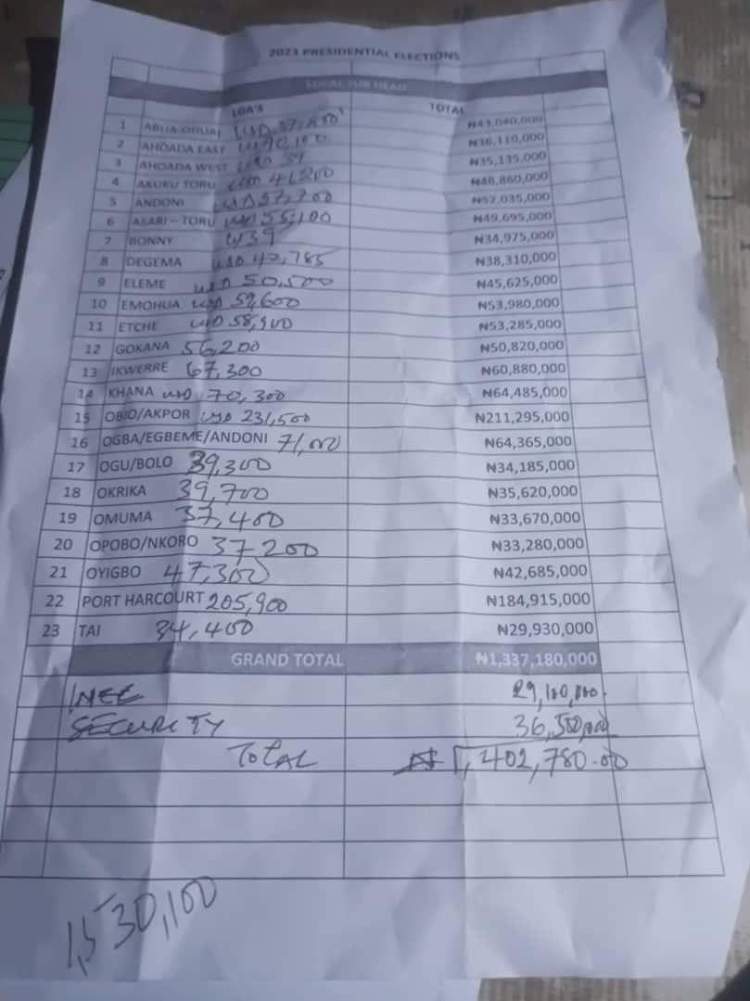 2023 PRESIDENTIAL ELECTIONS
LGA's TOTAL
1 ABUA-ODUAL USD ₦43,040,000
2 AHOADA EAST USD ₦36,110,000
3 AHOADA WEST USD ₦35,135,000
4 AKUKU TORU USD 41,200 ₦46,860,000
5 ANDONI USD 57,700 ₦52,035,000
6 ASARI-TORU USD 55,100 ₦49,695,000
7 BONNY ₦34,975,000
8 DEGEMA USD 42,785 ₦38,310,000
9 ELEME USD 50,500 ₦45,625,000
10 EMOHUA USD 59,600 ₦53,980,000
11 ETCHE USD 58,900 ₦53,285,000
12 GOKANA 56,200 ₦50,820,000
13 IKWERRE 67,300 ₦60,880,000
14 KHANA USD 70,300 ₦64,485,000
15 OBIO/AKPOR USD 231,500 ₦211,295,000
16 OGBA/EGBEME/ANDONI 71,000 ₦64,365,000
17 OGU/BOLO 39,300 ₦34,185,000
18 OKRIKA 39,700 ₦35,620,000
19 OMUMA 37,400 ₦33,670,000
20 OPOBO/NKORO 37200 ₦33,280,000
21 OYIGBO 47,300 ₦42,685,000
22 PORT HARCOURT 205,900 ₦184,915,000
23 TAI 34,400 ₦29,930,000
GRAND TOTAL ₦1,337,180,000
INEC 29,100,000.
SECURITY 36,500,000
TOTAL ₦ 1,402,780.00
1,530,100